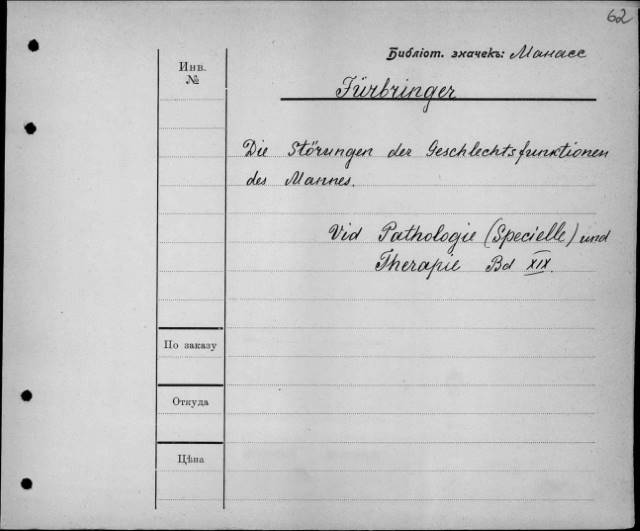 62
Библіот. значекъ: Манасс
Инв.
№
Fürbringer
Die Störungen der Geschlechtsfunktionen
des Mannes.
Vid Pathologie (Specielle) und
Therapie Bd XIX.
По заказу
Откуда
Цѣна